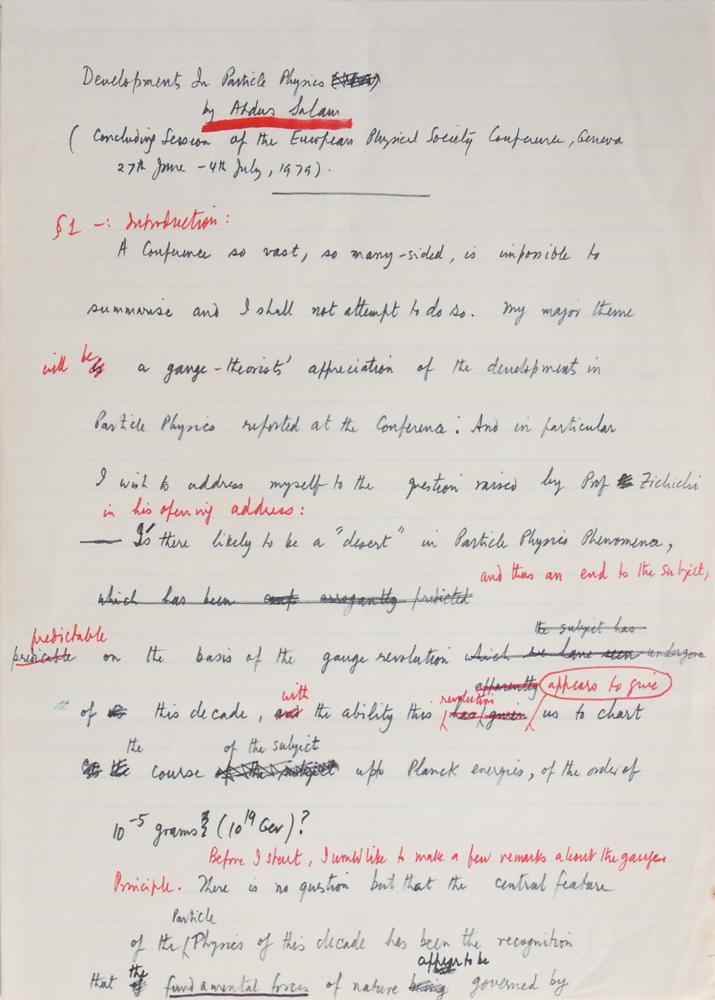 Developments In Particle Physics
by Abdus Salam
( Concluding Session of the European Physical Society Conference, Geneva
27th June - 4th July, 1979).
§1 -: Introduction:
A Conference so vast, so many-sided, is impossible to
summarise and I shall not attempt to do so. My major theme
will be a gauge-theorists' appreciation of the development in
Particle Physics reported at the Conference: And in particular
I wish to address myself to the question raised by Prof Zichichi
in his opening address:
— Is there likely to be a "desert" in Particle Physics Phenomena,
and thus an end to the subject,
which has been arrogantly predicted
the subject has
predictable
predicable on the basis of the gauge revolution which we have seen undergone
apparently appears to give
with revolution
of this decade, and the ability this has given us to chart
the of the subject
the course of the subject upto Planck energies, of the order of
10⁻⁵ grams (10¹⁹ Gev)?
Before I start, I would like to make a few remarks about the gauge
Principle. There is no question but that the central feature
Particle
of the Physics of this decade has been the recognition
the appear to be
that of fundamental forces of nature being governed by